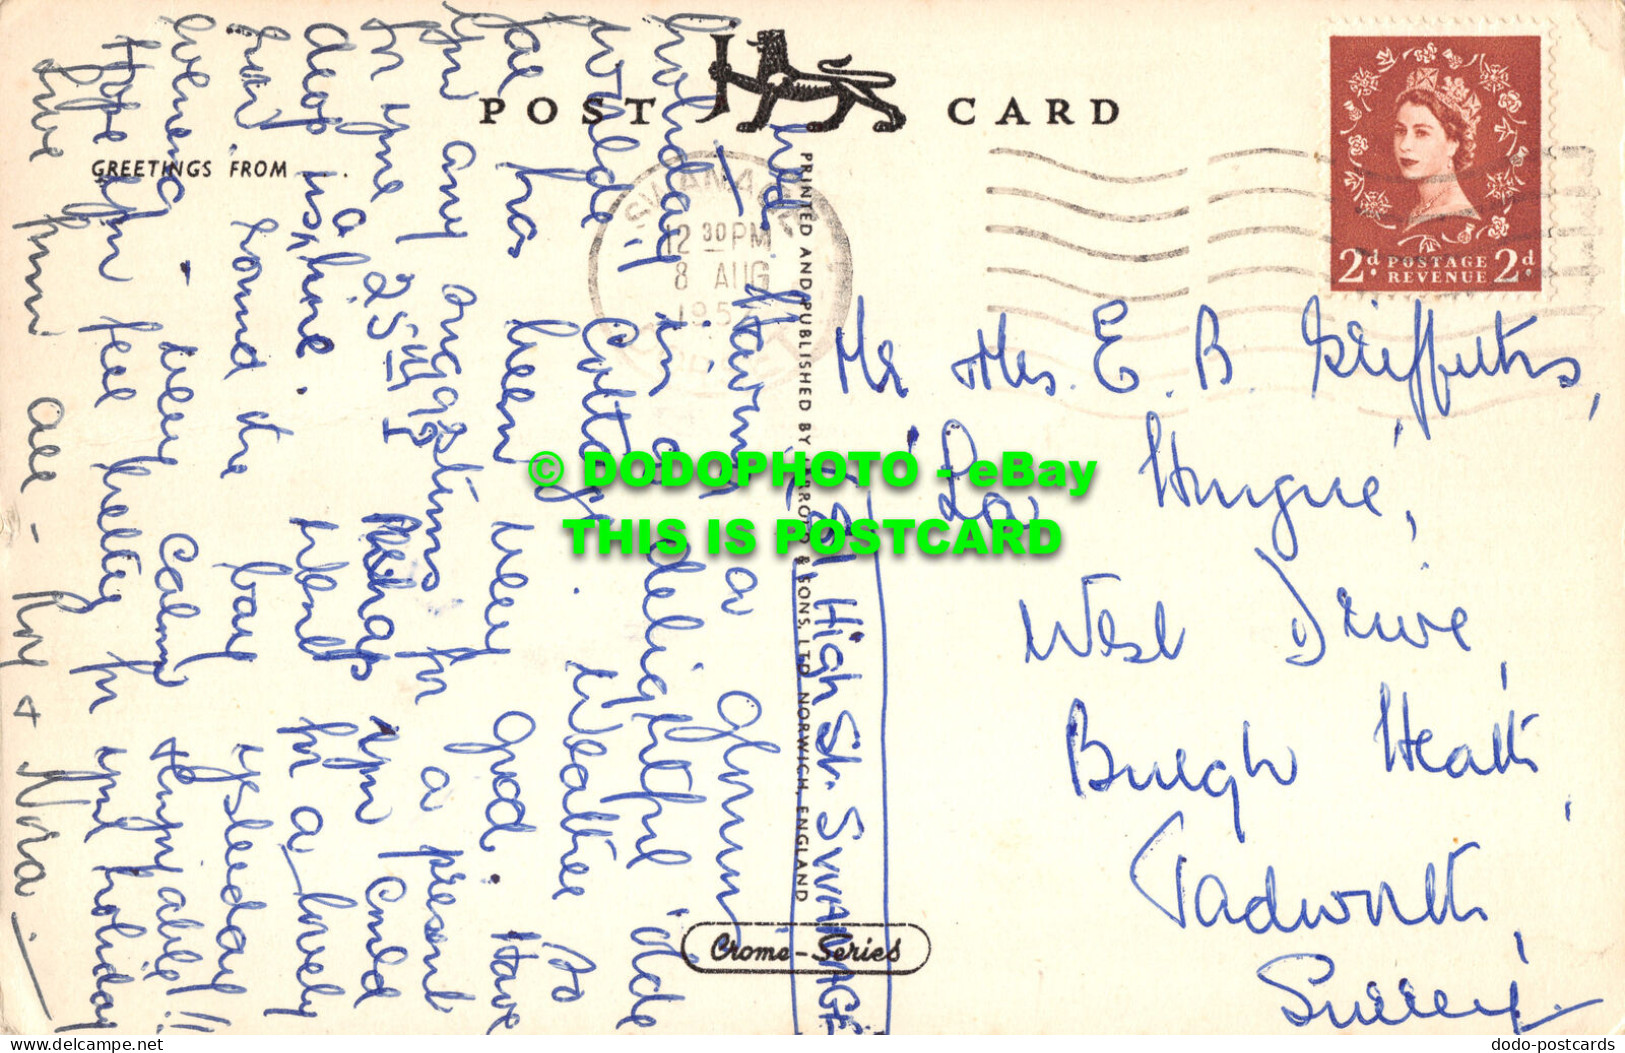 POST CARD
GREETINGS FROM
PRINTED AND PUBLISHED BY JARROLD & SONS, LTD. NORWICH, ENGLAND
Crome-Series
SWANAGE
12 30 PM
8 AUG
195
2d. POSTAGE REVENUE 2d.
Mr Mrs. E. B. Griffiths,
'La Hugue',
West Drive,
Burgh Heath,
Tadworth,
Surrey.
High St. SWANAGE
Wed.
Having a glorious
holiday in a delightful olde
worlde Cottage. Weather So
far has been very good. Have
you any suggestions for a present
for your 25th? Perhaps you could
drop us a line. Went for a lovely
sail round the bay yesterday
evening - very calm & enjoyable!!
Hope you feel better for your holiday
Love from all - Roy & Nora.
© DODOPHOTO - eBay
THIS IS POSTCARD
dodo-postcards
delcampe.net